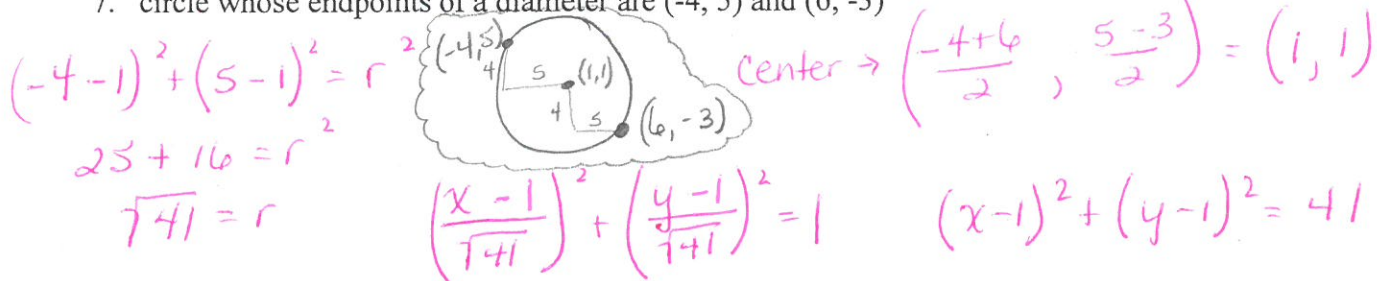 7. circle whose endpoints of a diameter are (-4, 5) and (6, -3)
(-4-1)² + (5-1)² = r²
25 + 16 = r²
√41 = r
(-4,5)
4 5 (1,1)
4 5 (6,-3)
Center → (-4+6/2, 5-3/2) = (1,1)
(x-1/√41)² + (y-1/√41)² = 1
(x-1)² + (y-1)² = 41